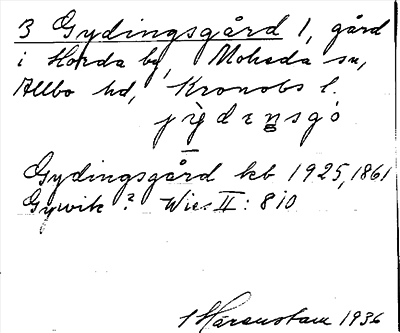 3 Gydingsgård 1, gård
i Horda by, Moheda sn,
Allbo hd, Kronobs l.
Gydingsgård kb 1925, 1861
Gyvik? Wies. II: 810
Härenstam 1936